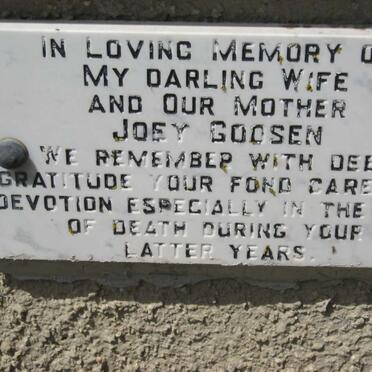 IN LOVING MEMORY O
MY DARLING WIFE
AND OUR MOTHER
JOEY GOOSEN
WE REMEMBER WITH DEE
GRATITUDE YOUR FOND CARE
DEVOTION ESPECIALLY IN THE
OF DEATH DURING YOUR
LATTER YEARS.